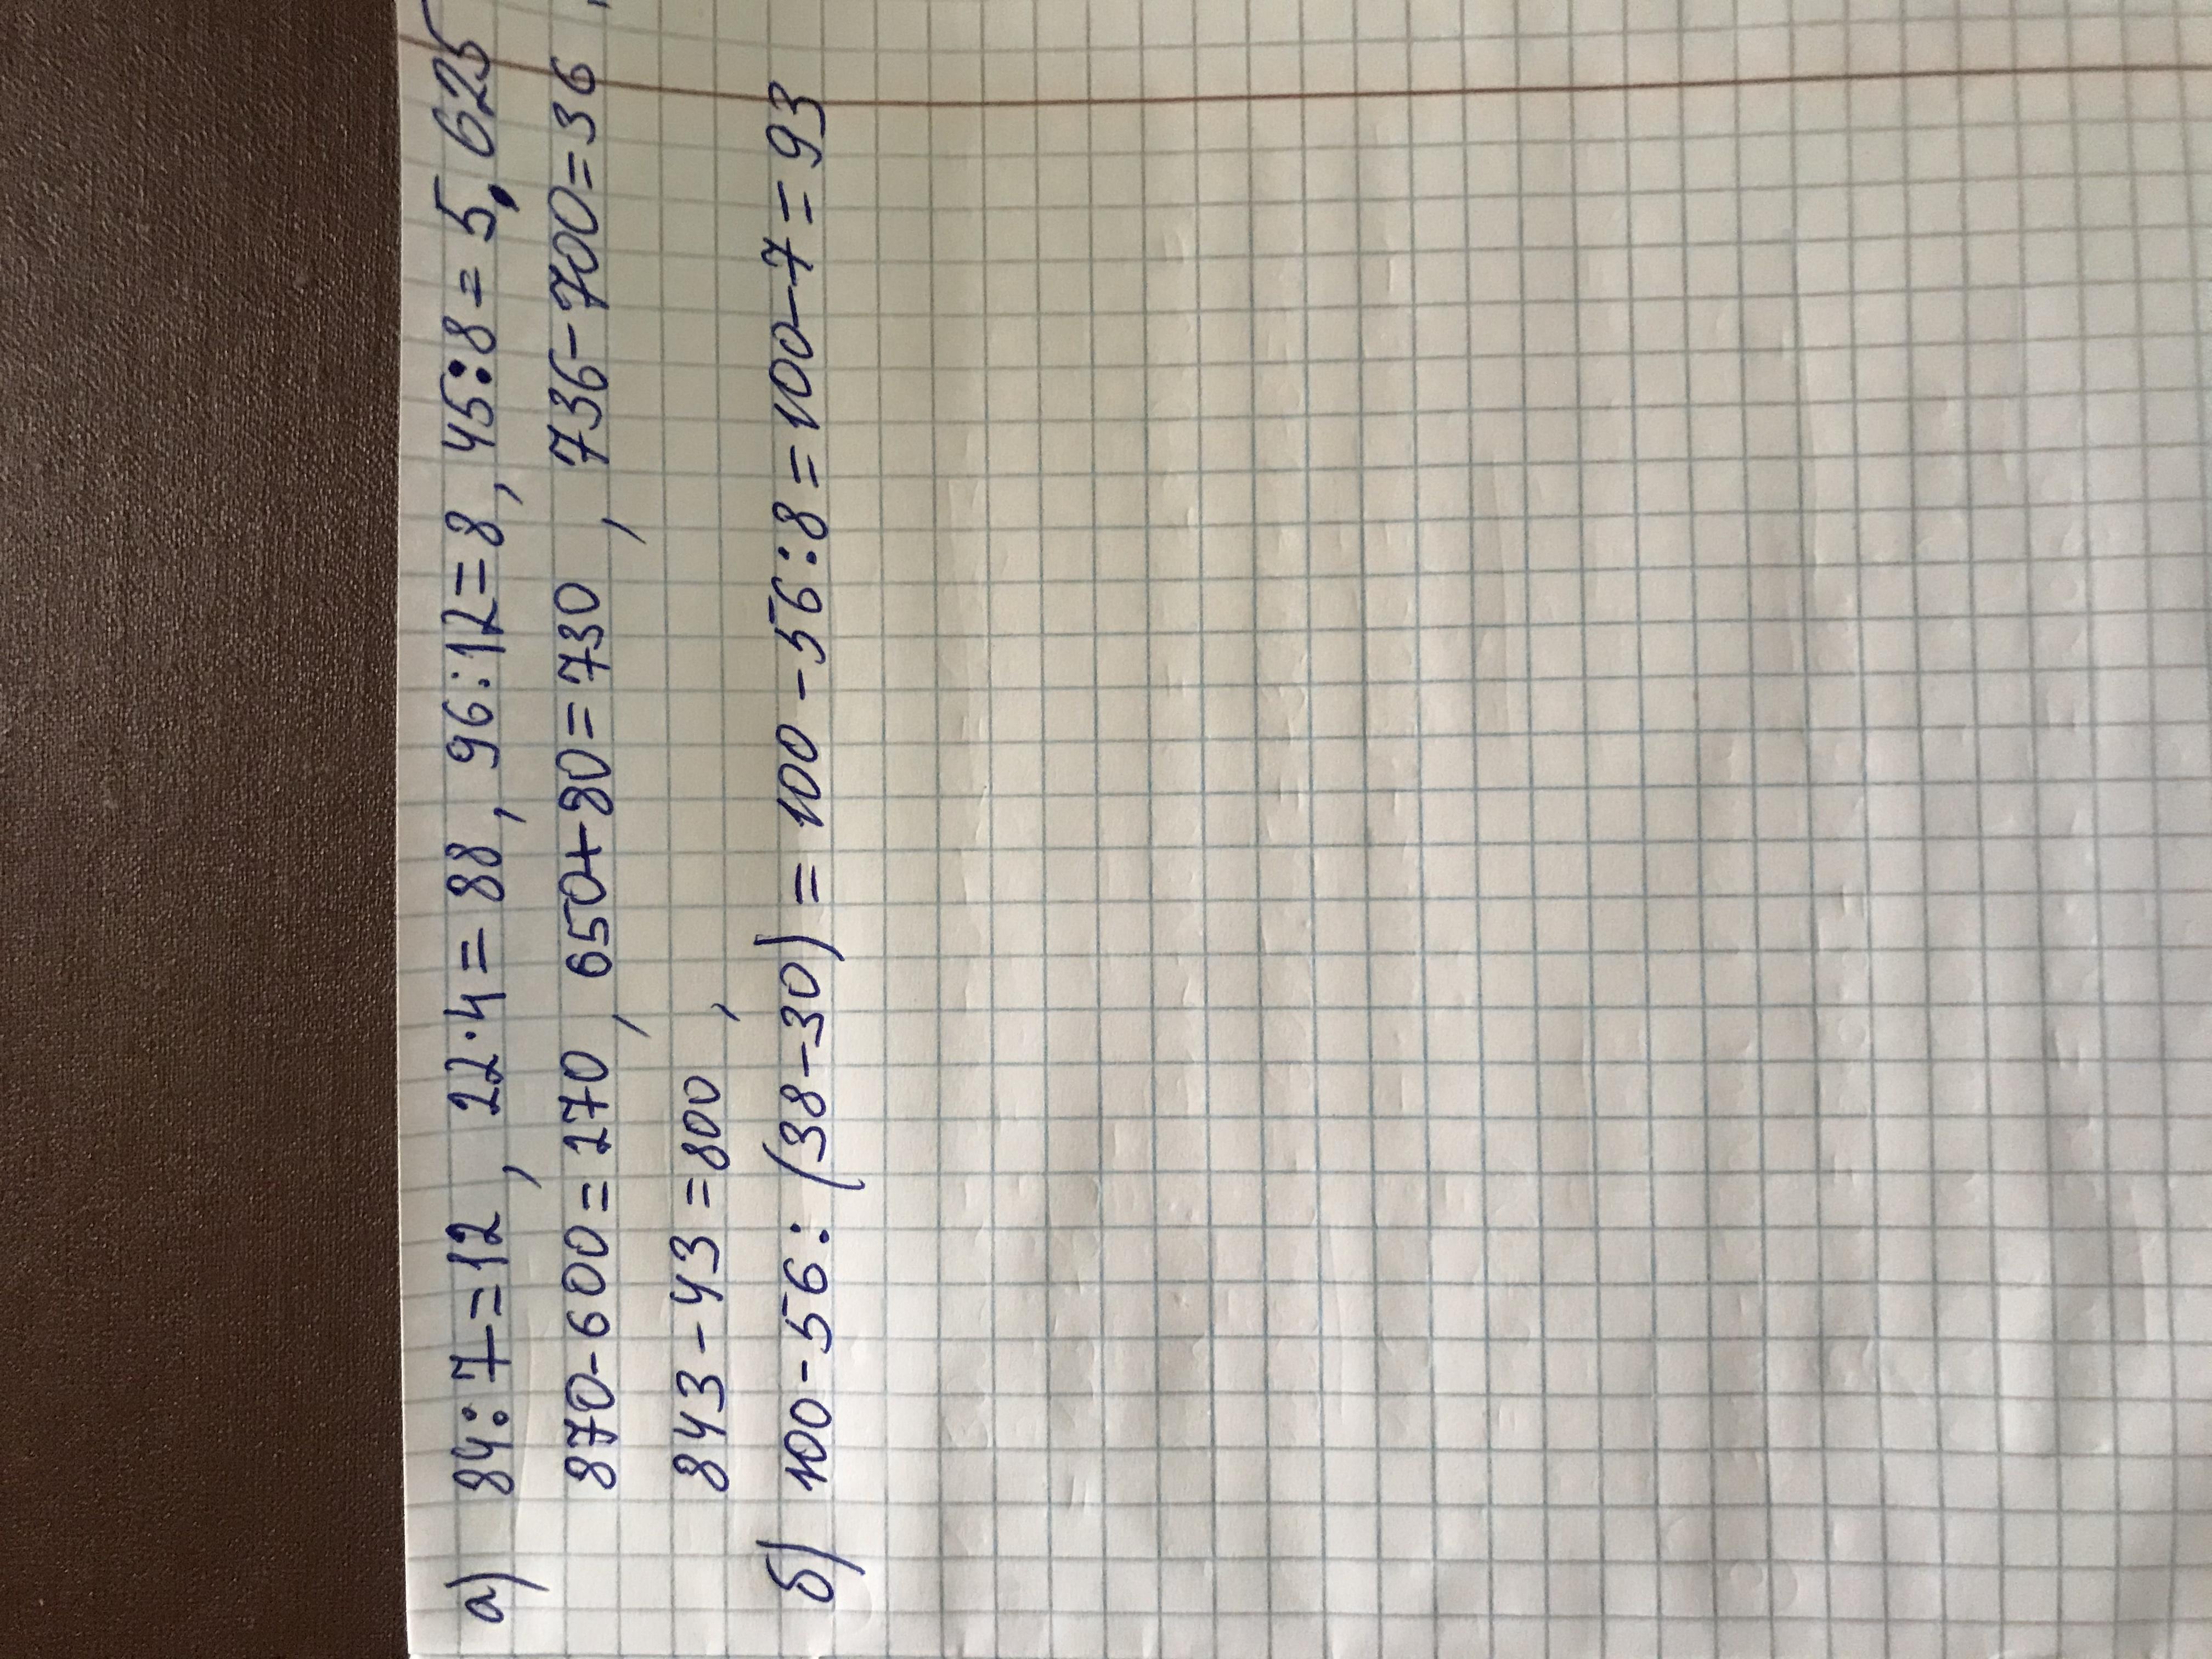 а) 84:7=12, 22·4=88, 96:12=8, 45:8=5,625
870-600=270, 650+80=730, 736-700=36,
843-43=800,
б) 100-56:(38-30)=100-56:8=100-7=93